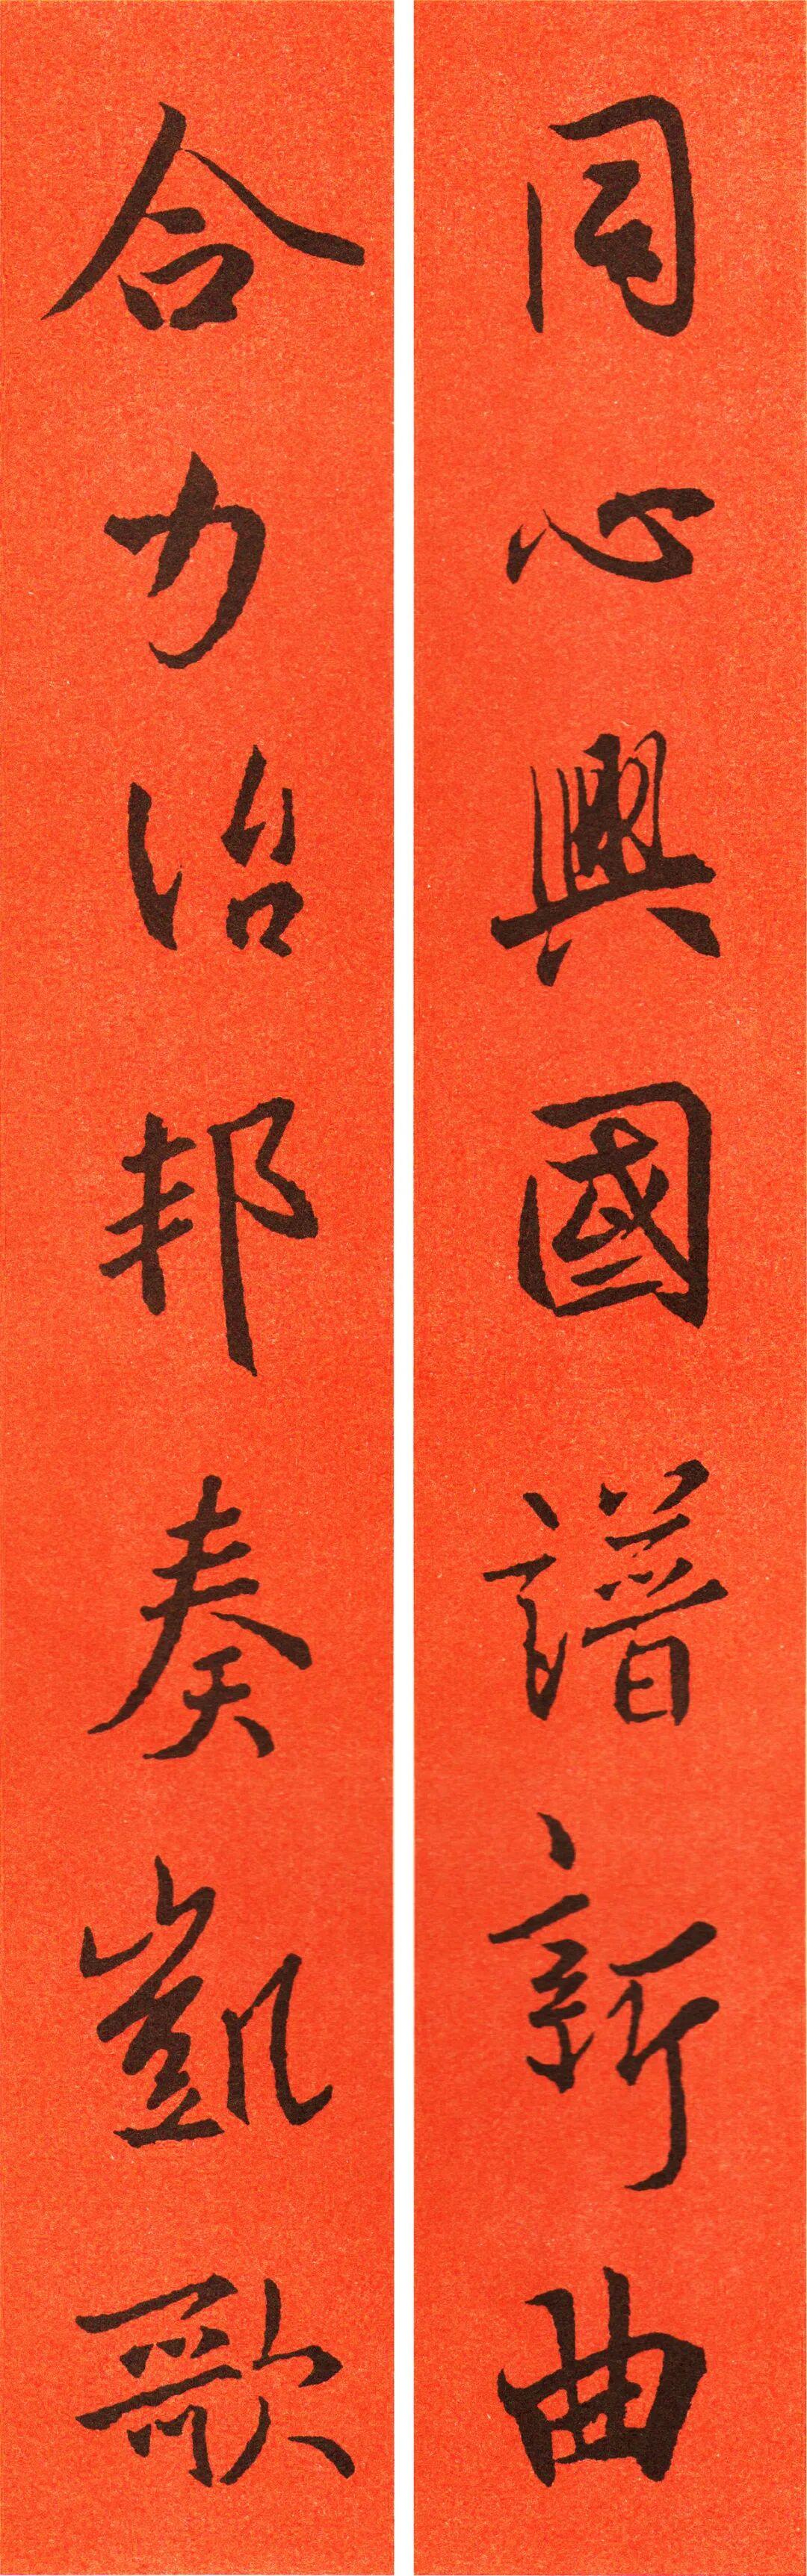 同心興國譜新曲
合力治邦奏凱歌